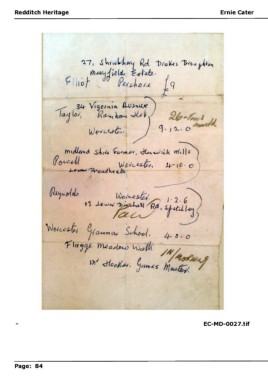 Redditch Heritage Ernie Cater
27, Shrubbery Rd Drakes Broughton
Mayfield Estate.
Elliot Pershore £9
34 Virginia Avenue
Taylor, Rainbow Hill,
Worcester. 9.12.0
month
Midland Shire Farmer, Henwick Mills
Powell Worcester. 4-10-0
Reynolds Worcester 1-2-6
Lower Rd,
Worcester Grammar School. 4-0-0
Flagge Meadow Walk
Mr Hooker, Games Master.
EC-MD-0027.tif
Page: 84